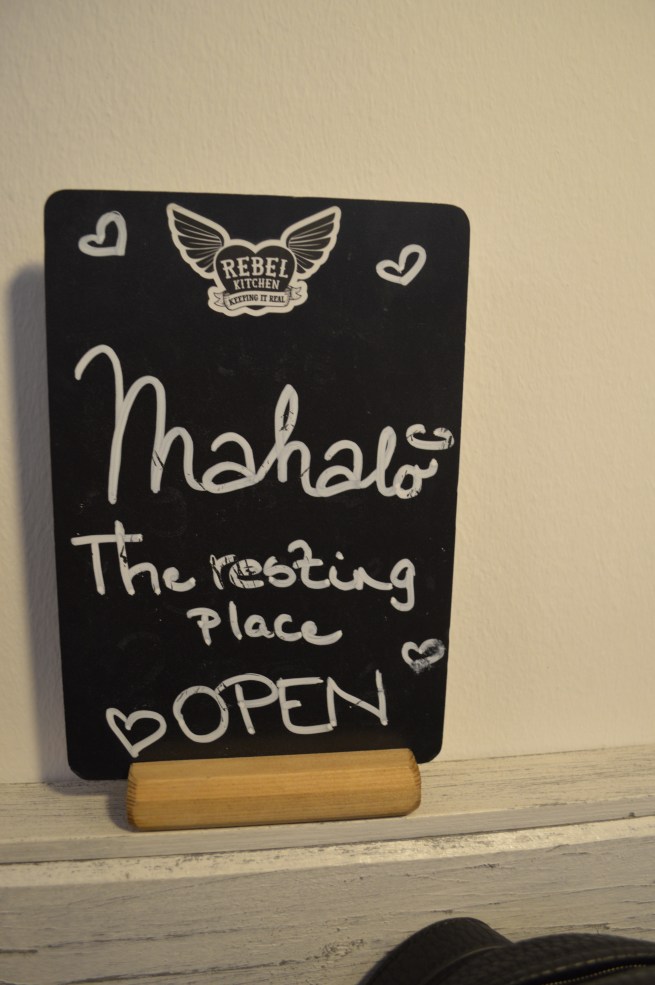 REBEL
KITCHEN
KEEPING IT REAL
Mahalo
The resting
place
OPEN